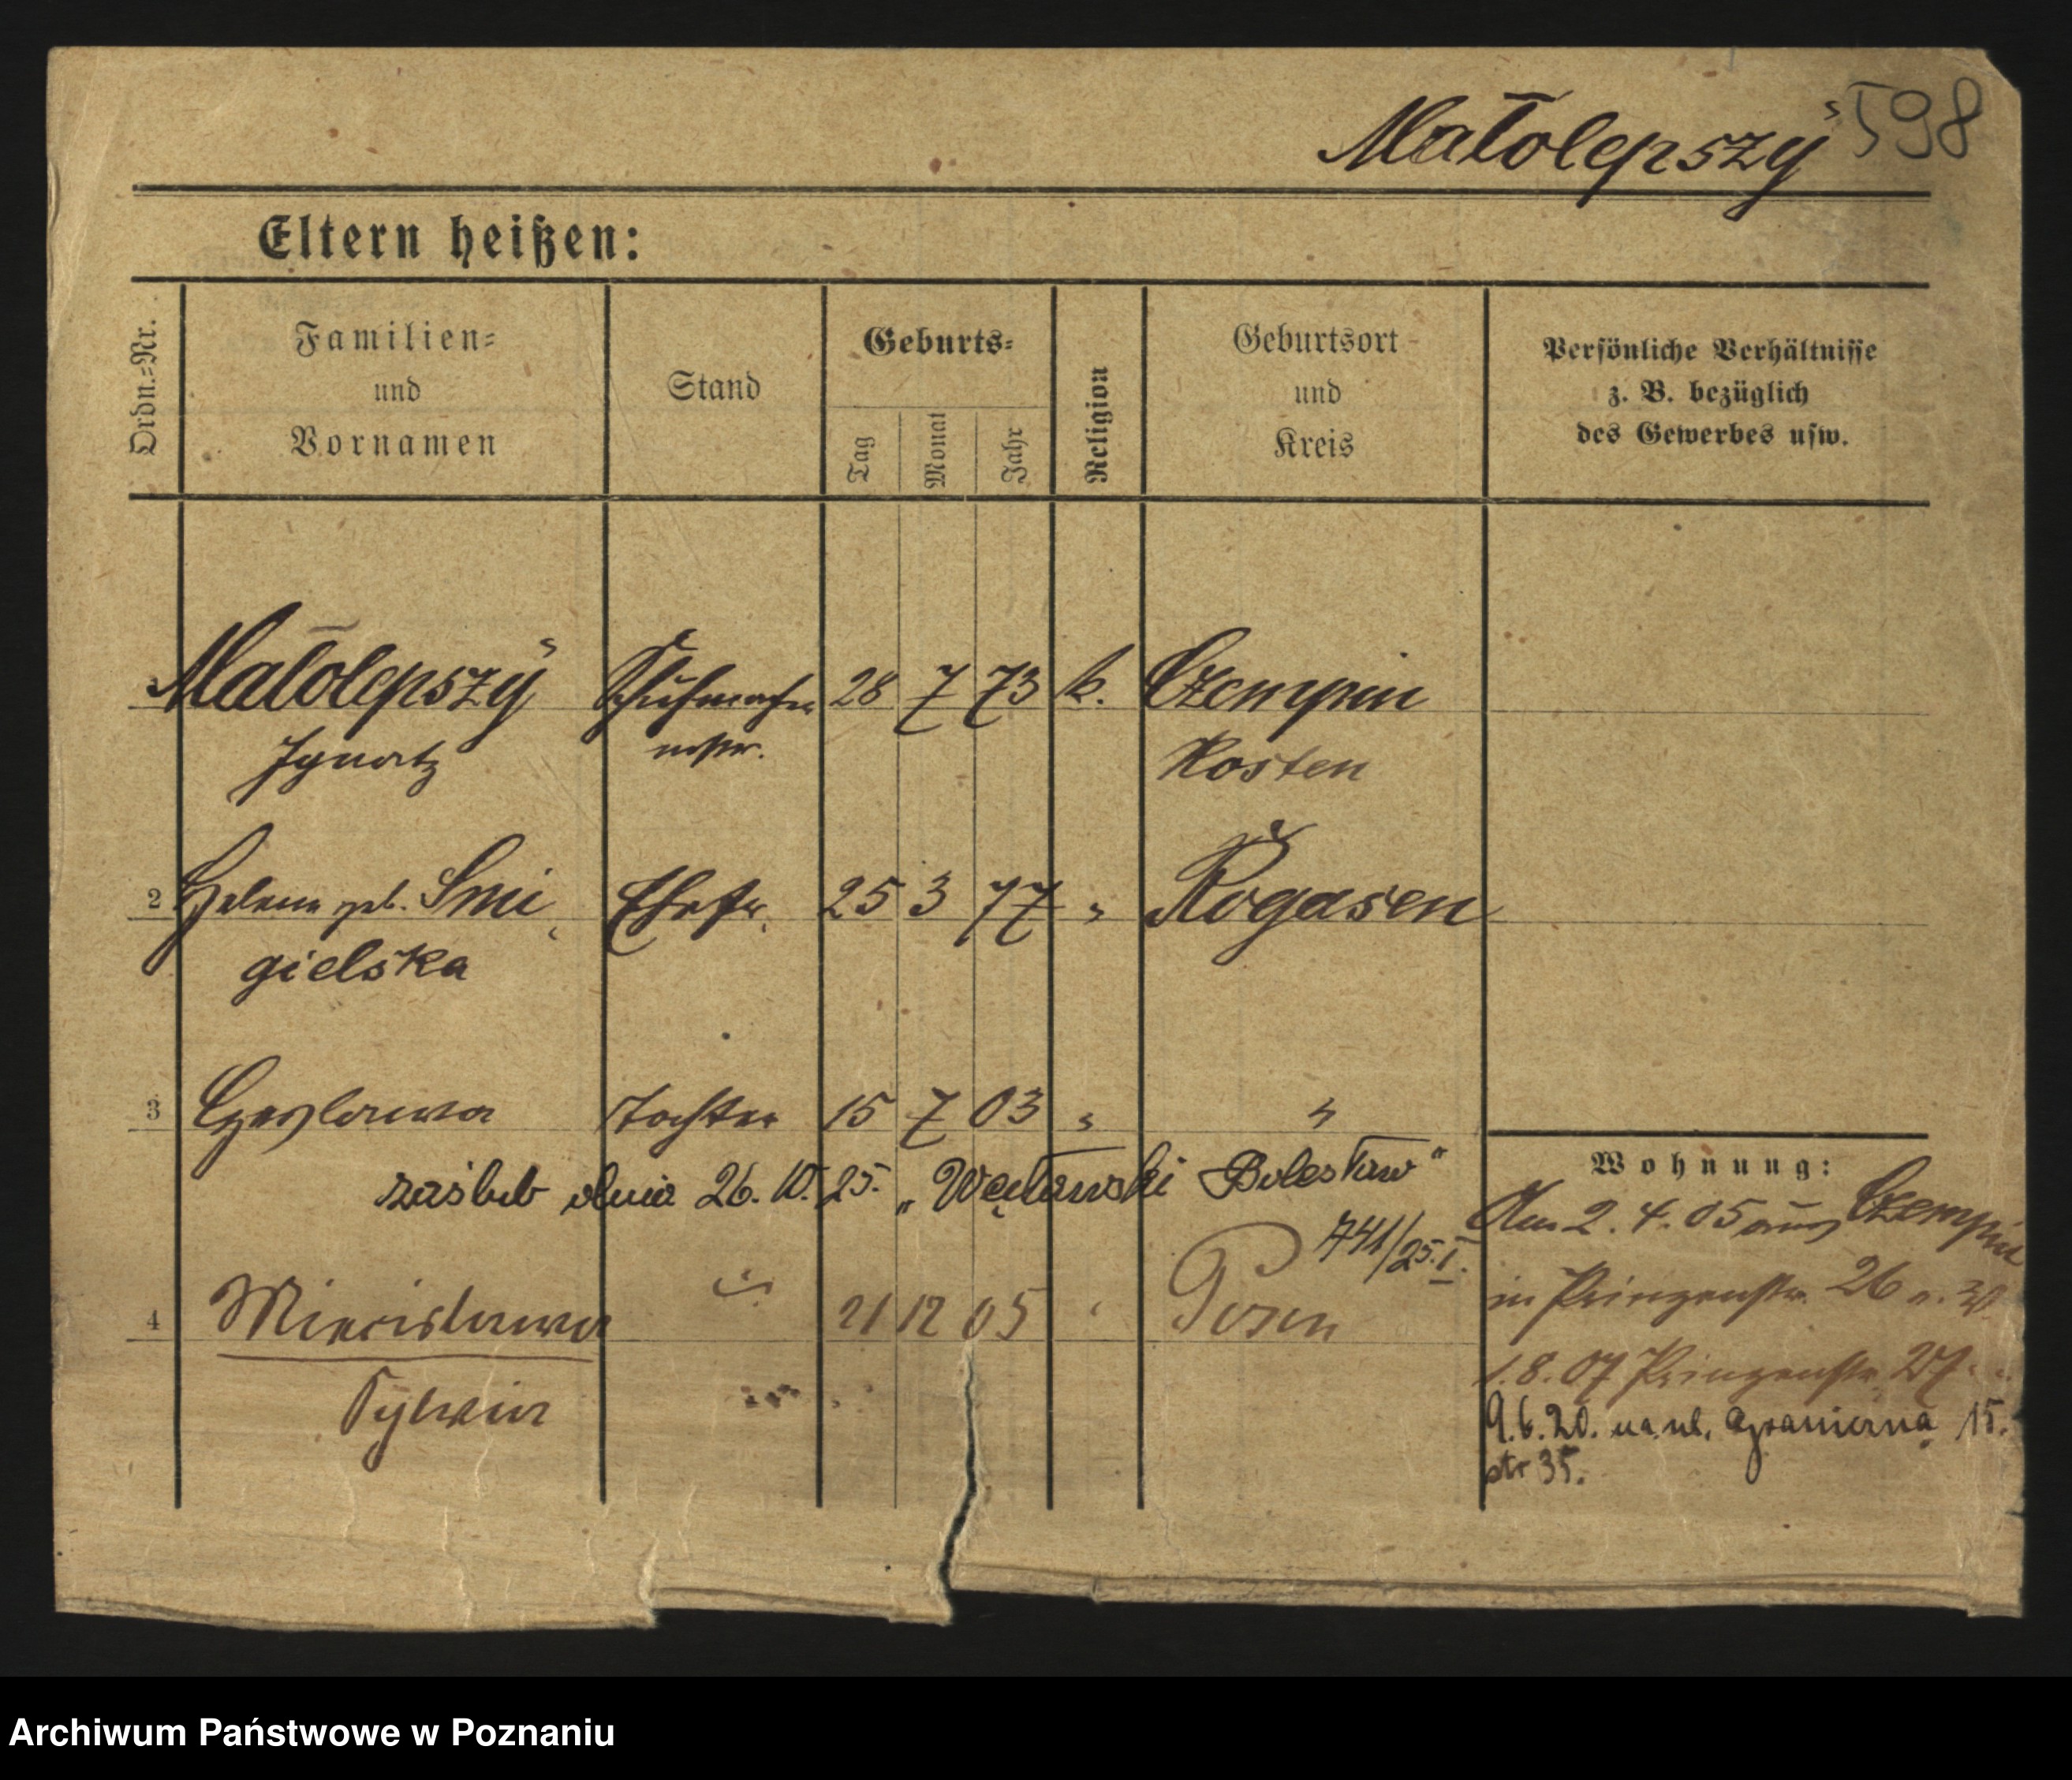 Małolepszy 598
Eltern heißen:
Ordn.-Nr.
Familien-
und
Vornamen
Stand
Geburts-
Tag
Monat
Jahr
Religion
Geburtsort
und
Kreis
Persönliche Verhältnisse
z. B. bezüglich
des Gewerbes usw.
Małolepszy Schuhmacher 28 7 73 k. Czempin
Ignatz mstr. Kosten
2 Helene geb. Smi Ehefr. 25 3 77 " Rogasen
gielska
3 Czeslawa Tochter 15 7 03 " "
zaślub dnia 26.10.25. „ Bolesław"
741/25.I.
4 Miecislawa 21 12 05 " Posen
Sylwia
Wohnung:
Am 2.4.05 aus Czempin
in Prinzenstr. 26
1.8.07 Prinzenstr. 27
9.6.20. na ul. 15.
str 35.
Archiwum Państwowe w Poznaniu